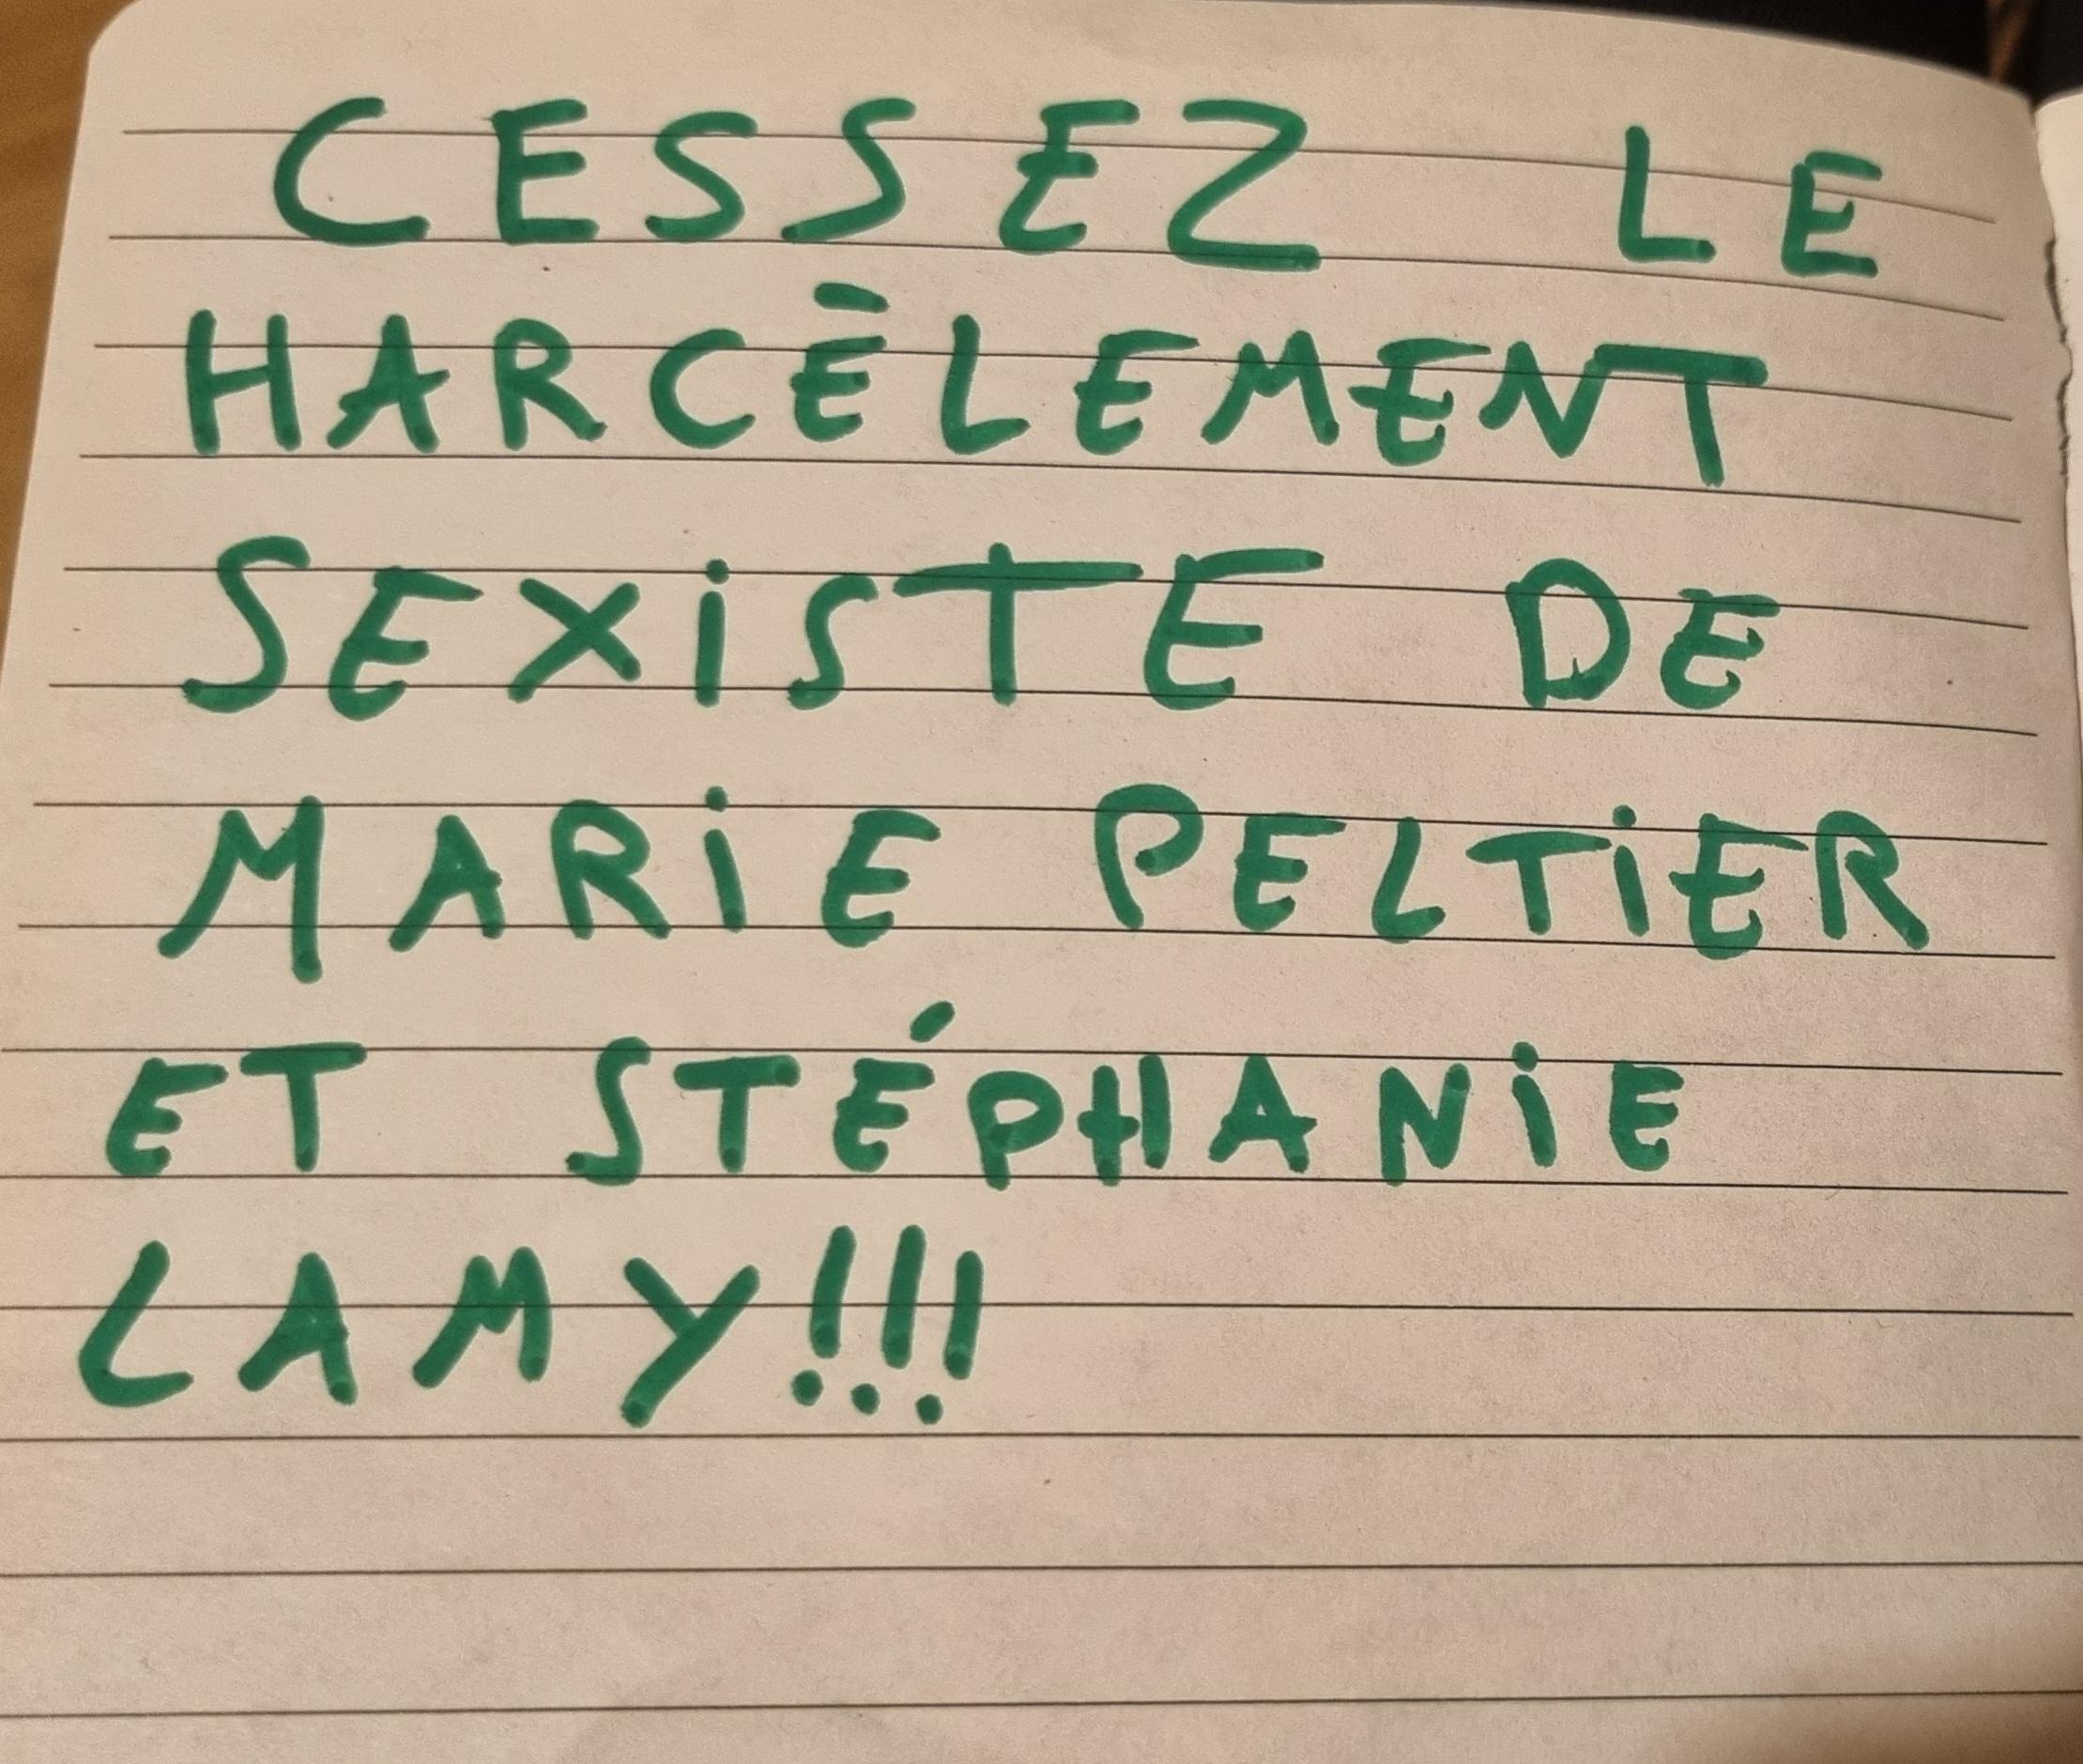 CESSEZ LE
HARCÈLEMENT
SEXiSTE DE
MARiE PELTiER
ET STÉPHANiE
LAMY!!!